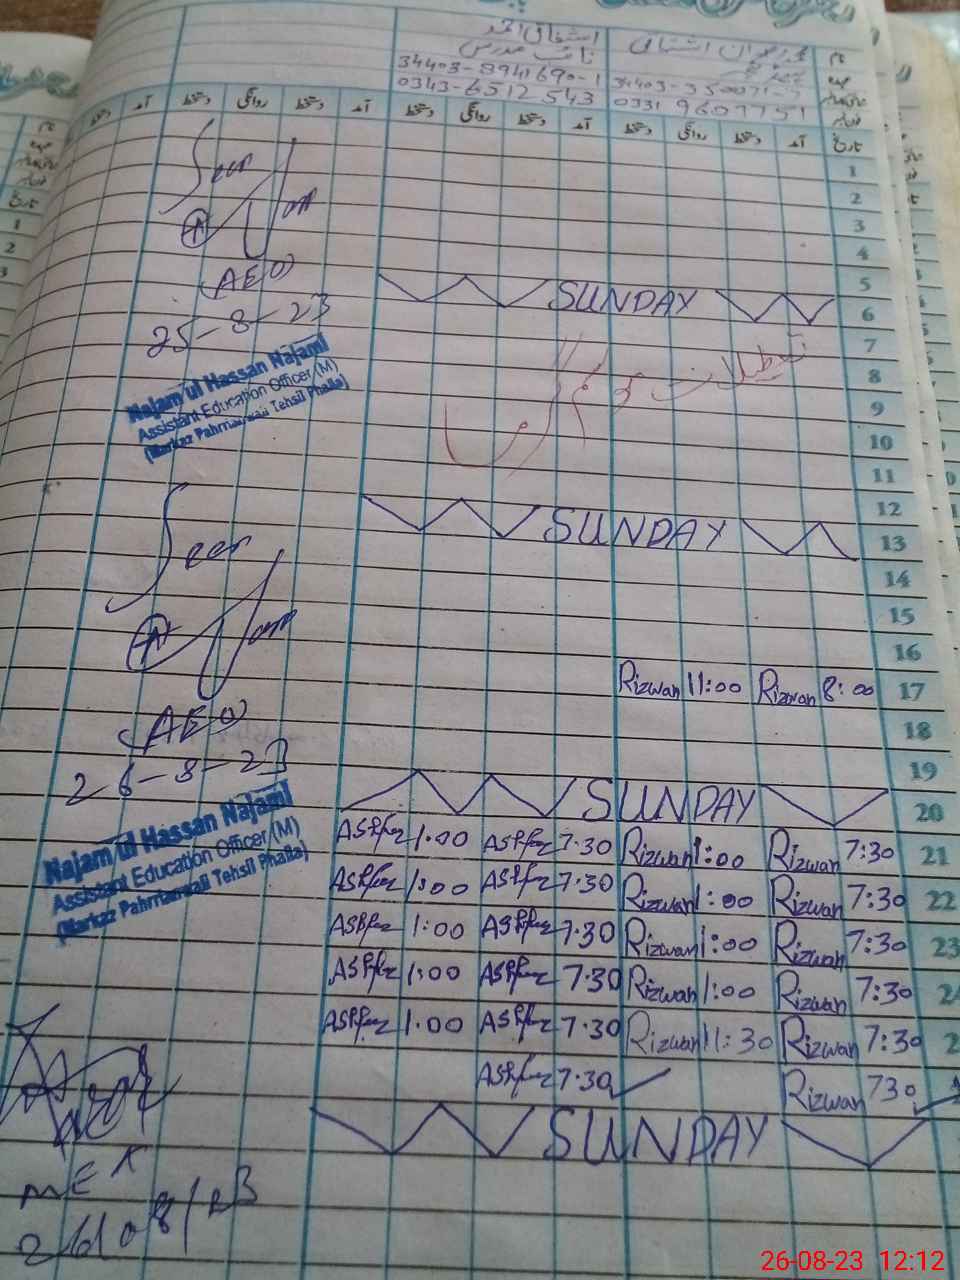 اشتیاق
اشفاق احمد
نائب مدرس
34403-8941690-1
34403-350071-7
0343-6512543
0331 9607751
تاریخ آمد دستخط روانگی دستخط آمد دستخط روانگی دستخط آمد دستخط روانگی دستخط آمد دستخط
1
2
3
4
5
SUNDAY 6
7
تعطیلات موسم گرما 8
9
10
11
12
SUNDAY 13
14
15
16
Rizwan 11:00 Rizwan 8:00 17
18
19
SUNDAY 20
Ashfaq 1.00 Ashfaq 7.30 Rizwan 1:00 Rizwan 7:30 21
Ashfaq 1:00 Ashfaq 7.30 Rizwan 1:00 Rizwan 7:30 22
Ashfaq 1:00 Ashfaq 7.30 Rizwan 1:00 Rizwan 7:30 23
Ashfaq 1:00 Ashfaq 7.30 Rizwan 1:00 Rizwan 7:30
Ashfaq 1.00 Ashfaq 7.30 Rizwan 11:30 Rizwan 7:30
Ashfaq 7.30 Rizwan 730
SUNDAY
Seen
AEO
25-8-23
Najam ul Hassan Najami
Assistant Education Officer (M)
(Markaz Pahrianwali Tehsil Phalia)
Seen
AEO
26-8-23
Najam ul Hassan Najami
Assistant Education Officer (M)
(Markaz Pahrianwali Tehsil Phalia)
26/08/23
26-08-23 12:12